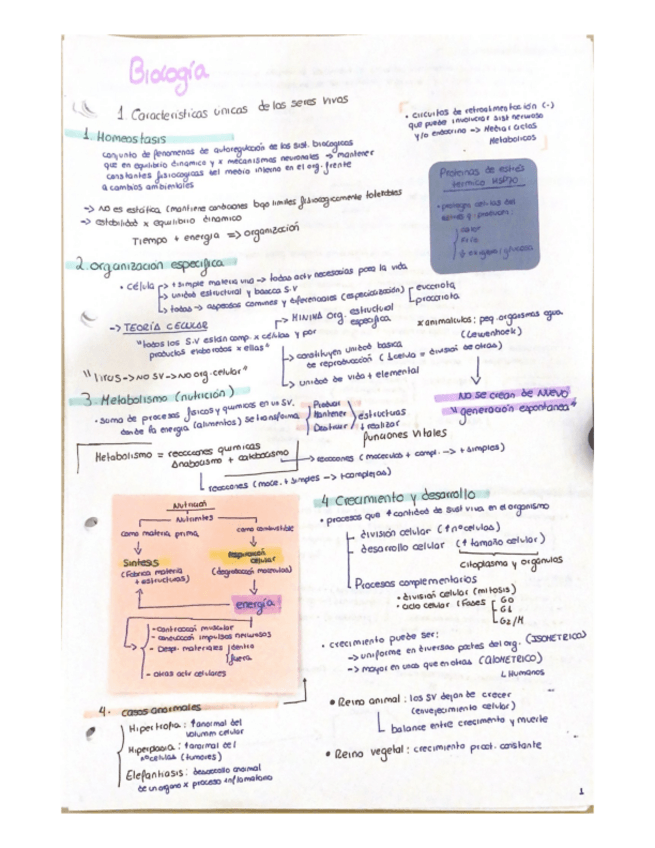 Biología
1. Características únicas de los seres vivos
1. Homeostasis
conjunto de fenomenos de autoregulación de los sist. biologicos
que en equilibrio dinamico y x mecanismos neuronales → mantener
constantes fisiologicas del medio interno en el org. frente
a cambios ambientales
-> NO es estática (mantiene condiciones bajo limites fisiologicamente tolerables
-> estabilidad x equilibrio dinamico
Tiempo + energia => organización
• circuitos de retroalimentación (-)
que puede involucrar sist nervioso
y/o endocrino -> Median ciclos
Metabolicos
Proteinas de estrés
termico HSP70
• protegen celulas del
estres q producen:
calor
frio
↓ oxigeno/glucosa
2. organización especifica
• célula → + simple materia viva → todas activ necesarias para la vida
→ unidad estructural y basica S.V
→ todas → aspectos comunes y diferenciales (especialización) eucariota
procariota
-> TEORÍA CELULAR
"todos los S.V están comp. x células y por
productos elaborados x ellas"
→ MINIMA org. estructural
especifica
→ constituyen unidad basica
de reproducción (1 celula = división de otras)
→ unidad de vida + elemental
x animalculos: peq. organismos agua
(Lewenhoek)
NO se crean de NUEVO
"generación espontanea"
"Virus -> NO SV -> NO org. celular"
3. Metabolismo (nutrición)
• suma de procesos fisicos y quimicos en un SV,
donde la energia (alimentos) se transforma
Producir
Mantener
Destruir
estructuras
↓ realizar
funciones vitales
Metabolismo = reacciones quimicas
Anabolismo + catabolismo
→ reacciones (moleculas + compl. -> + simples)
reacciones (molec. + simples -> + complejas)
Nutricion
Nutrientes
como materia prima
como combustible
Síntesis
(Fabrica materia
+ estructuras)
Respiración
celular
(degradación moleculas)
energía
- contracción muscular
- conducción impulsos nerviosos
- Despl. materiales dentro
fuera
- otras activ celulares
4. casos anormales
Hipertrofia: ↑ anormal del
volumen celular
Hiperplasia: ↑ anormal del
nº celulas (tumores)
Elefantiasis: desarrollo anormal
de un organo x proceso inflamatorio
4 Crecimiento y desarrollo
• procesos que ↑ cantidad de sust viva en el organismo
división celular (↑ nº celulas)
desarrollo celular (↑ tamaño celular)
citoplasma y orgánulos
Procesos complementarios
• división celular (mitosis)
• ciclo celular (Fases G0
G1
G2/M
• crecimiento puede ser:
-> uniforme en diversas partes del org. (ISOMETRICO)
-> mayor en unas que en otras (ALOMETRICO)
L Humanos
• Reino animal: los SV dejan de crecer
(envejecimiento celular)
balance entre crecimiento y muerte
• Reino vegetal: crecimiento pract. constante
1